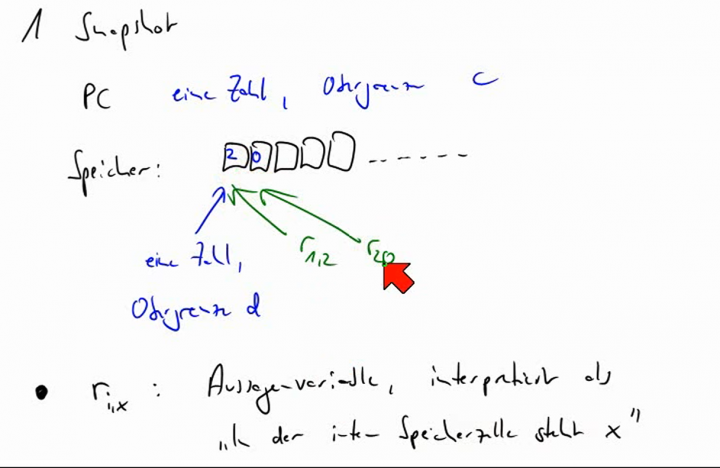 1 Snapshot
PC eine Zahl, Obergrenze C
Speicher: 2 0 ------
eine Zahl, r1,2 r2,0
Obergrenze d
• ri,x : Aussagenvariable, interpretiert als
„In der i-ten Speicherzelle steht x"